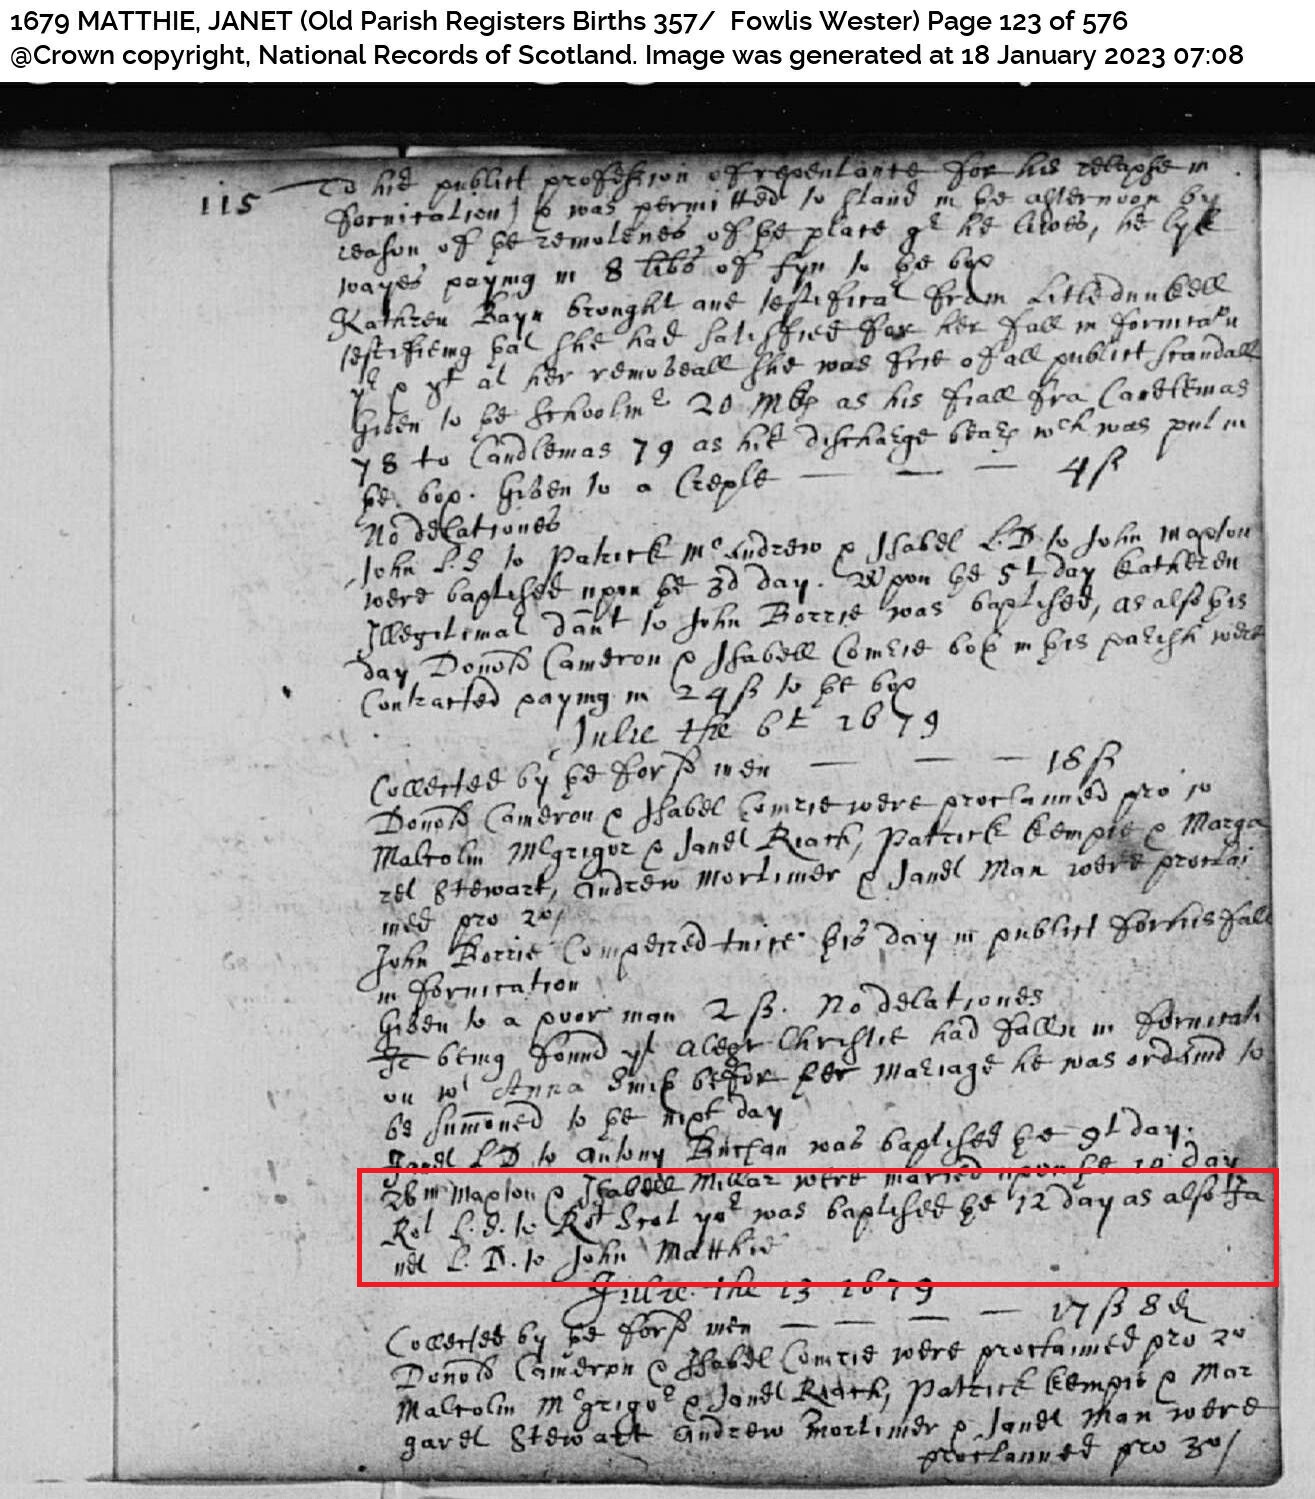 1679 MATTHIE, JANET (Old Parish Registers Births 357/ Fowlis Wester) Page 123 of 576
@Crown copyright, National Records of Scotland. Image was generated at 18 January 2023 07:08
115
To his publict profession of repentance for his relapse in
fornication) & was permitted to stand in þe afternoon by
reason of þe remotenes of þe place qr he lives, he lyk
wayes paying in 8 libs of fyn to þe box
Kathren Bayn brought ane testificat from Litledunkell
testifieing þat she had satisfied for her fall in fornica'n
yr & yt at her removeall she was frie of all publict scandall
Given to þe Schoolmr 20 mks as his fiall fra Candlemas
78 to Candlemas 79 as his discharge bears wch was put in
þe box. Given to a Creple — — — 4 ß
No delationes
John L.S to Patrick Mcandrew & Isabel L.D to John Maxton
were baptised upon þe 3d day. Upon þe 5t day Katheren
Illegitimat daut to John Borrie was baptised, as also þis
day Donold Cameron & Isabell Comrie boþ in þis parish were
Contracted paying in 24 ß to þe box
Julie the 6t 1679
Collected by þe fors men — — — 18 ß
Donold Cameron & Isabel Comrie were proclaimed pro 10
Malcolm Mcgrigor & Janet Riach, Patrick Kempie & Marga
ret Stewart, Andrew Mortimer & Janet Man were proclai
med pro 20/
John Borrie Compeered twice þis day in publict for his fall
in fornication
Given to a poor man 2 ß. No delationes
It being found yt Alexr Christie had fallen in fornicati
on wt Anna Smiþ befor þer mariage he was ordained to
be summoned to þe nixt day
Janet L D to Antony Buchan was baptised þe 9t day.
Maxton & Isabell Millar were maried upon þe 10 day
Rot L.S. to Rot Scot yor was baptised þe 12 day as also Ja
net L. D. to John Matthie
Julie the 13 1679
Collected by þe fors men — — — — 17 ß 8 d
Donold Cameron & Isabel Comrie were proclaimed pro 20
Malcolm Mcgrigor & Janet Riach, Patrick Kempie & Mar
garet Stewart Andrew Mortimer & Janet Man were
proclaimed pro 30/